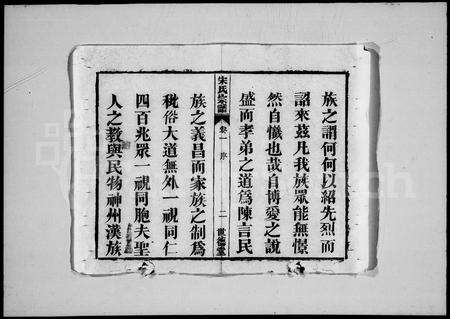 族之謂何何以紹先烈而
詔來茲凡我族眾能無憬
然自懺也哉自博愛之說
盛而孝弟之道為陳言民
宋氏宗譜 卷一 序 二 世德堂
族之義昌而家族之制為
秕俗大道無外一視同仁
四百兆眾一視同胞夫聖
人之教與民物神州漢族